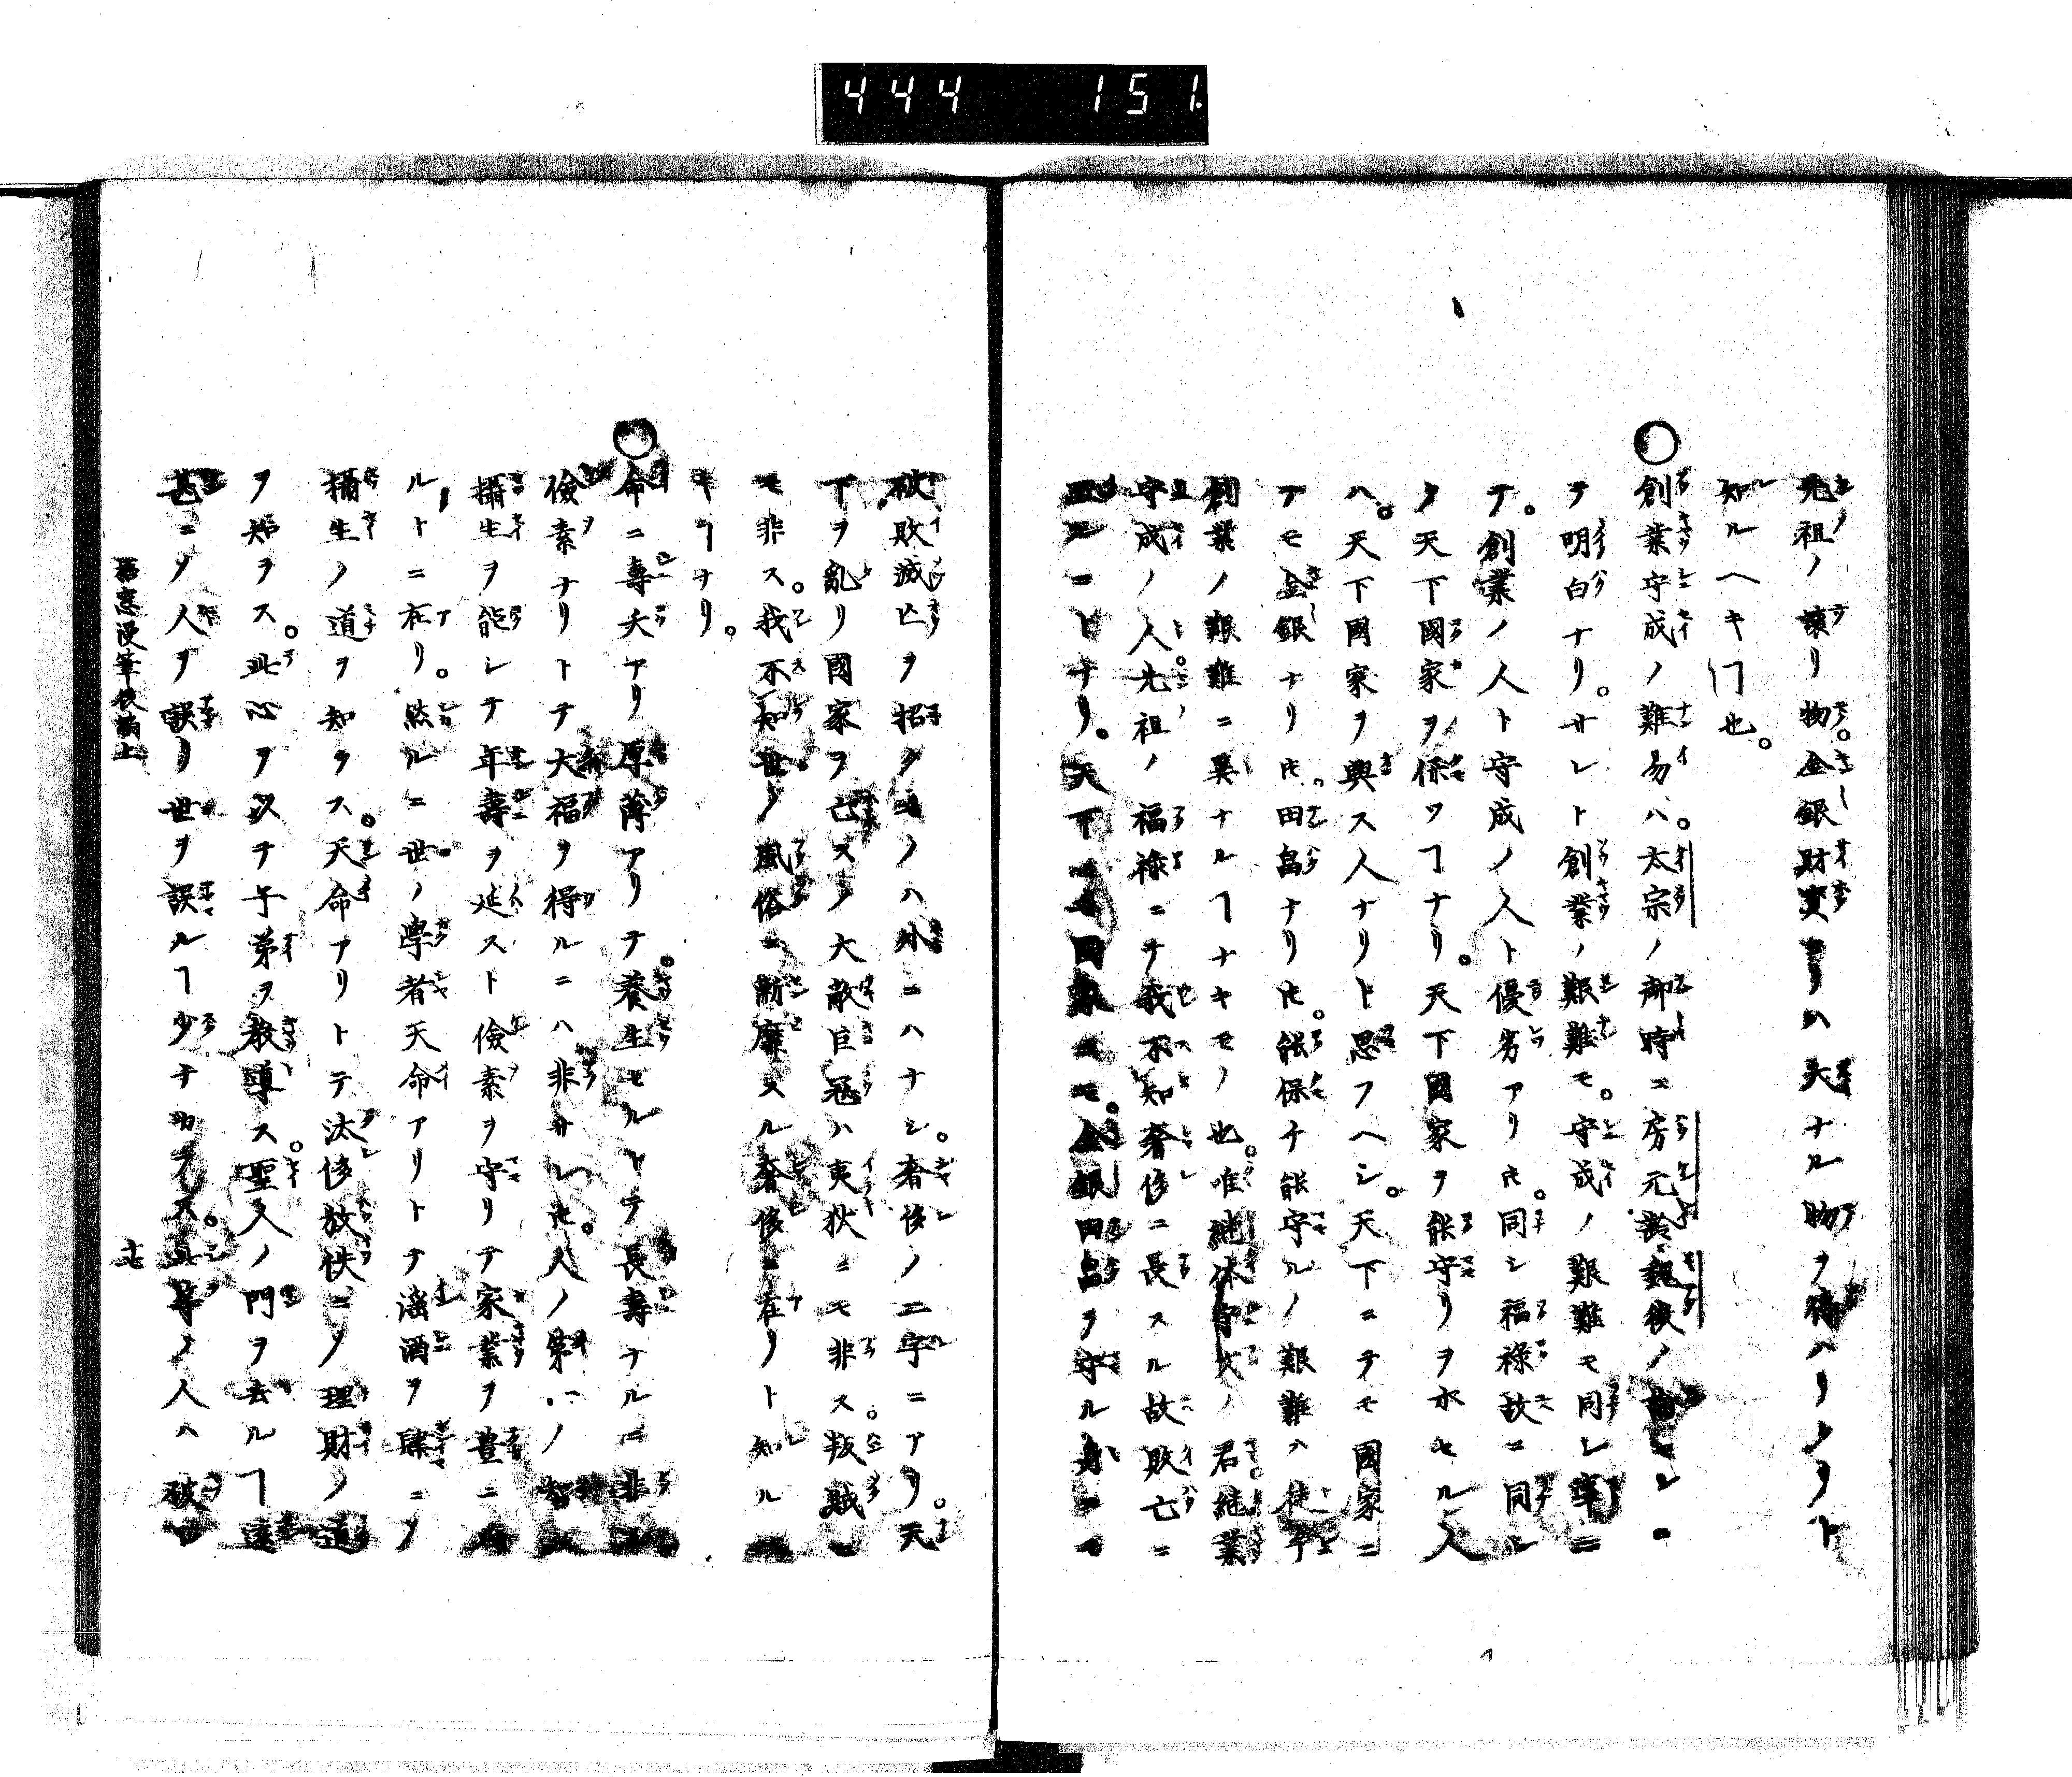 444 151
先祖ノ譲リ物。金銀財宝ヨリハ大ナル物ヲ得ハリノヲト
知ルヘキ𬼀也。
○創業守成ノ難易ハ。太宗ノ御時ニ房元齡魏徴ノ
テ明白ナリ。サレト創業ノ艱難モ。守成ノ艱難モ同シ事ニ
テ。創業ノ人ト守成ノ人ト優劣アリ𪜈。同シ福禄故ニ同シ
ク天下國家ヲ保ツヿナリ。天下國家ヲ能守リヲホセル人
ハ。天下國家ヲ興ス人ナリト思フヘシ。天下ニテモ國家ニ
テモ金銀ナリ𪜈。田畠ナリ𪜈。能保チ能守ルノ艱難ハ徒手
創業ノ艱難ニ異ナルヿナキモノ也。唯継体守文ノ君。継業
守成ノ人。先祖ノ福禄ニテ我不知奢侈ニ長スル故敗亡ニ
至ルコトナリ。天下モ國家モ。金銀田畠ヲ守ル身ニテ
破敗滅亡ヲ招クモノハ外ニハナシ。奢侈ノ二字ニアリ。天
下ヲ亂リ國家ヲ亡スノ大敵巨寇ハ夷狄ニモ非ス。叛賊ニ
モ非ス。我不知世ノ風俗ニ漸靡スル奢侈ニ在リト知ル
キヿナリ。
○命ニ壽夭アリ厚薄アリテ。養生モルトテ長壽ナルニ非ス
儉素ナリトテ大福ヲ得ルニハ非サレ𪜈。人ノ第一ノ智ハ
攝生ヲ能シテ年壽ヲ延スト儉素ヲ守リテ家業ヲ豊ニス
ルトニ在リ。然ルニ世ノ學者天命アリトテ滛酒ヲ肆ニシ
攝生ノ道ヲ知ラス。天命アリトテ汰侈放佚ニシ理財ノ道
ヲ知ラス。此心ヲ以テ子弟ヲ教導ス。聖人ノ門ヲ去ルヿ遠
甚ニシ人ヲ誤リ世ヲ誤ルヿ少ナカラス。此等ノ人ハ破
窓漫筆後編上
十七